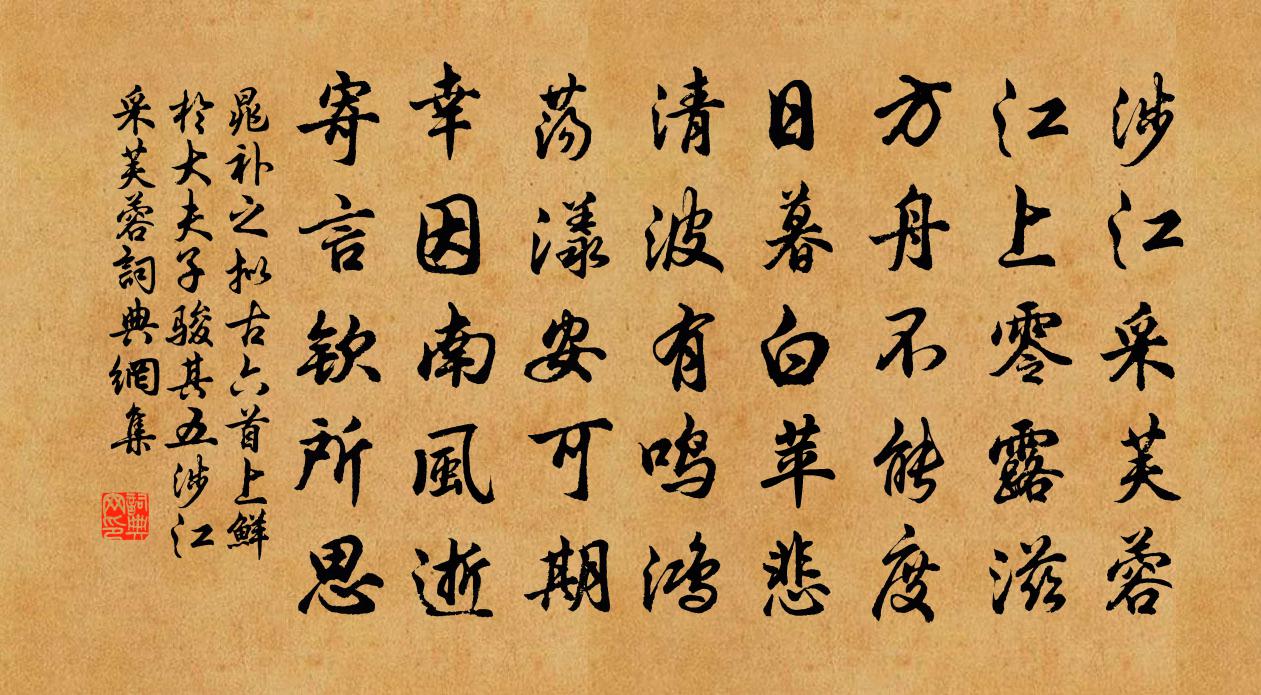 涉江采芙蓉
江上零露滋
方舟不能度
日暮白苹悲
清波有鸣鸿
荡漾安可期
幸因南風逝
寄言欽所思
晁补之拟古六首上鮮
於大夫子駿其五涉江
采芙蓉詞典網集
詞典
网印